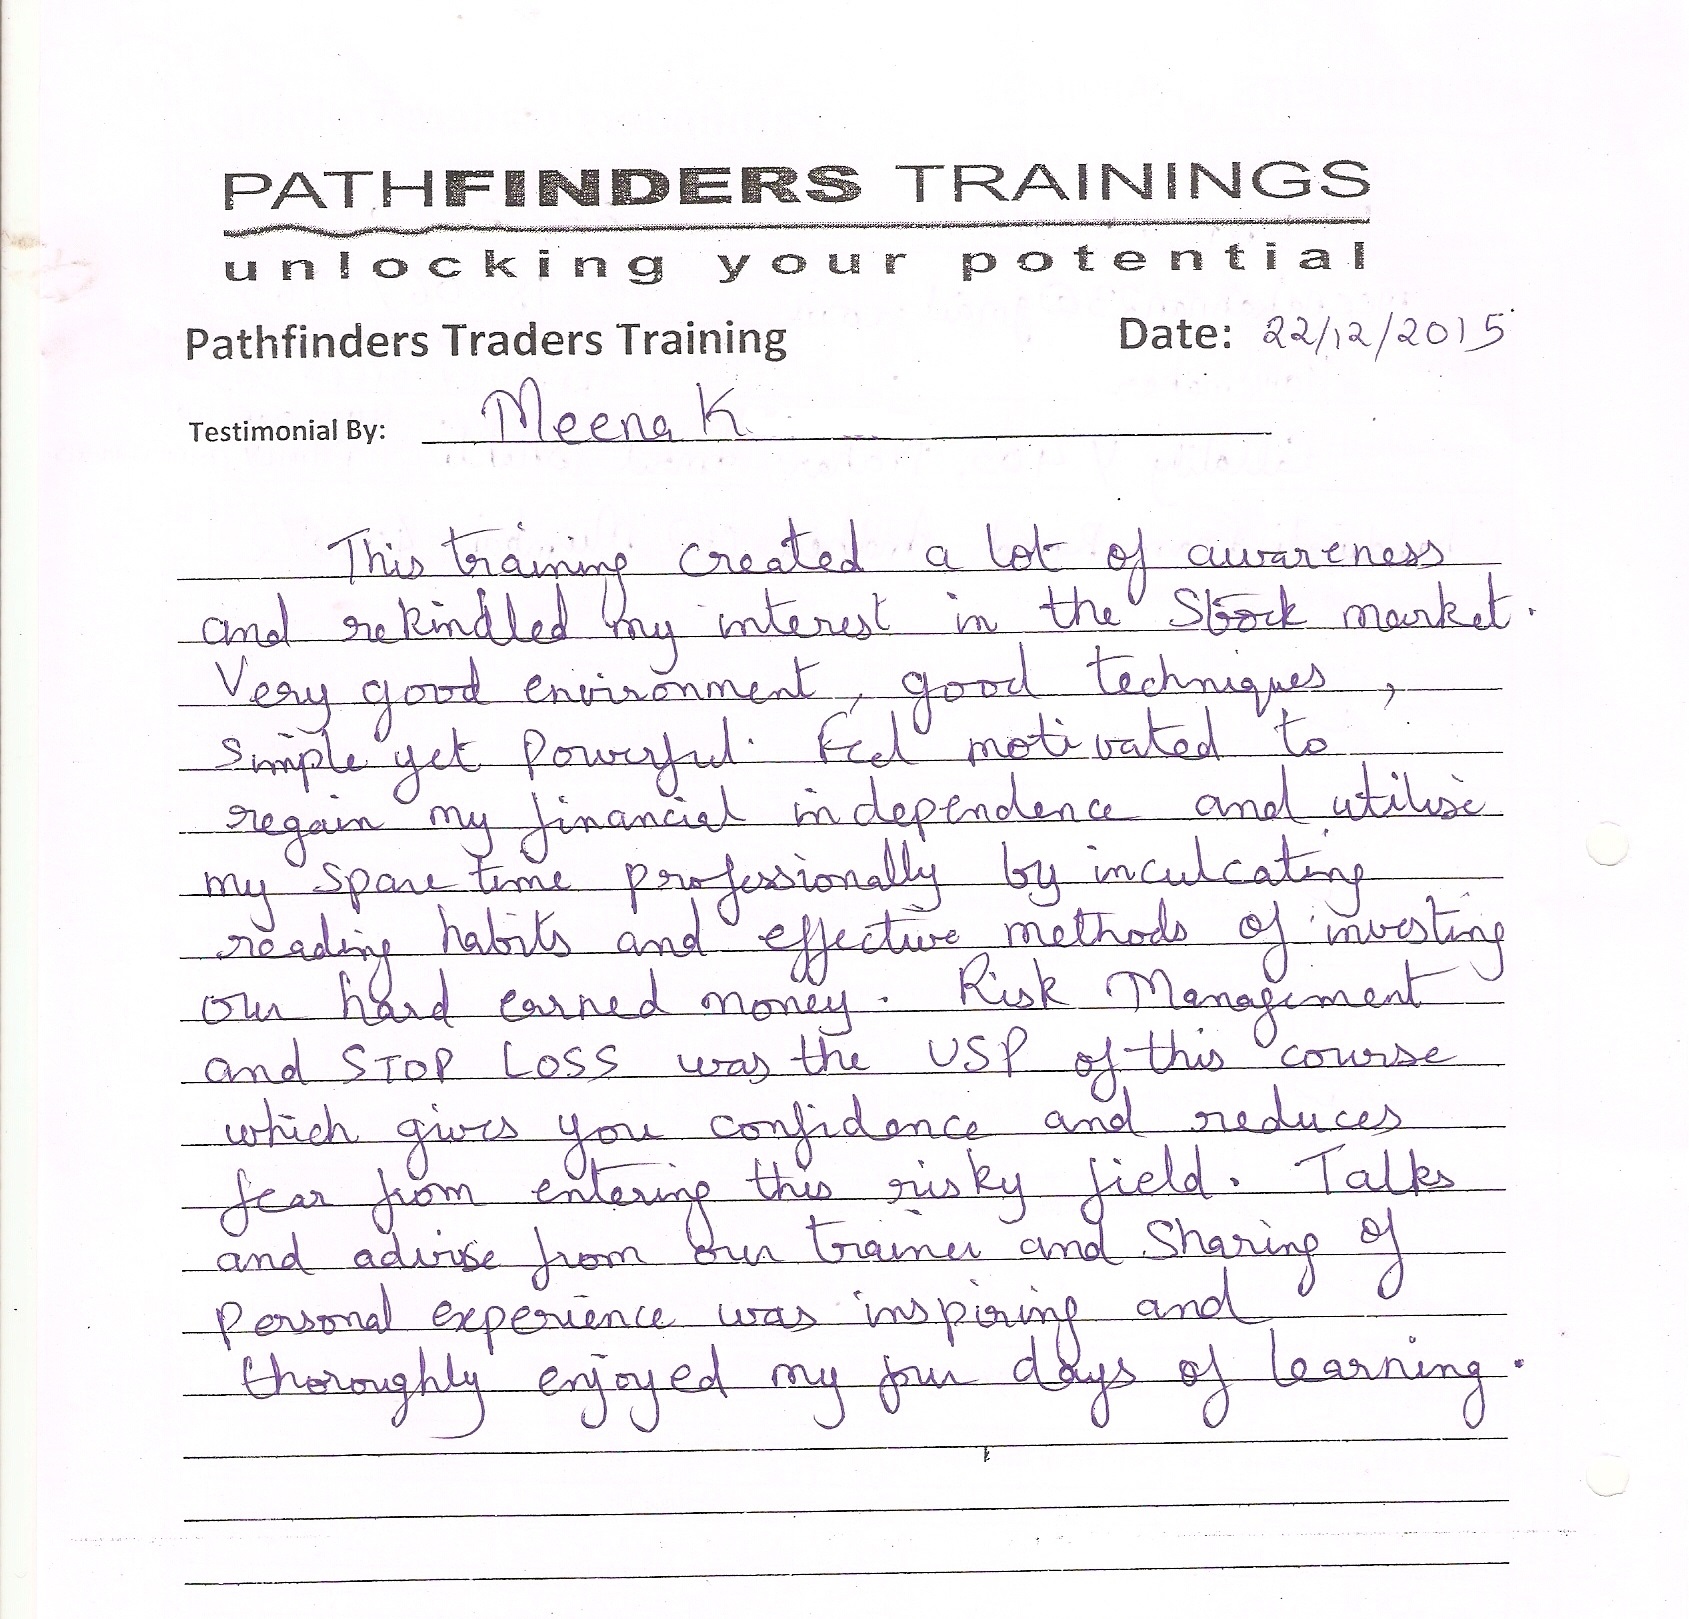 PATHFINDERS TRAININGS
unlocking your potential
Pathfinders Traders Training Date: 22/12/2015
Testimonial By: Meena K
This training created a lot of awareness
and rekindled my interest in the Stock market.
Very good environment, good techniques,
simple yet powerful. Feel motivated to
regain my financial independence and utilise
my spare time professionally by inculcating
reading habits and effective methods of investing
our hard earned money. Risk Management
and STOP LOSS was the USP of this course
which gives you confidence and reduces
fear from entering this risky field. Talks
and advise from our trainer and sharing of
personal experience was inspiring and
thoroughly enjoyed my four days of learning.